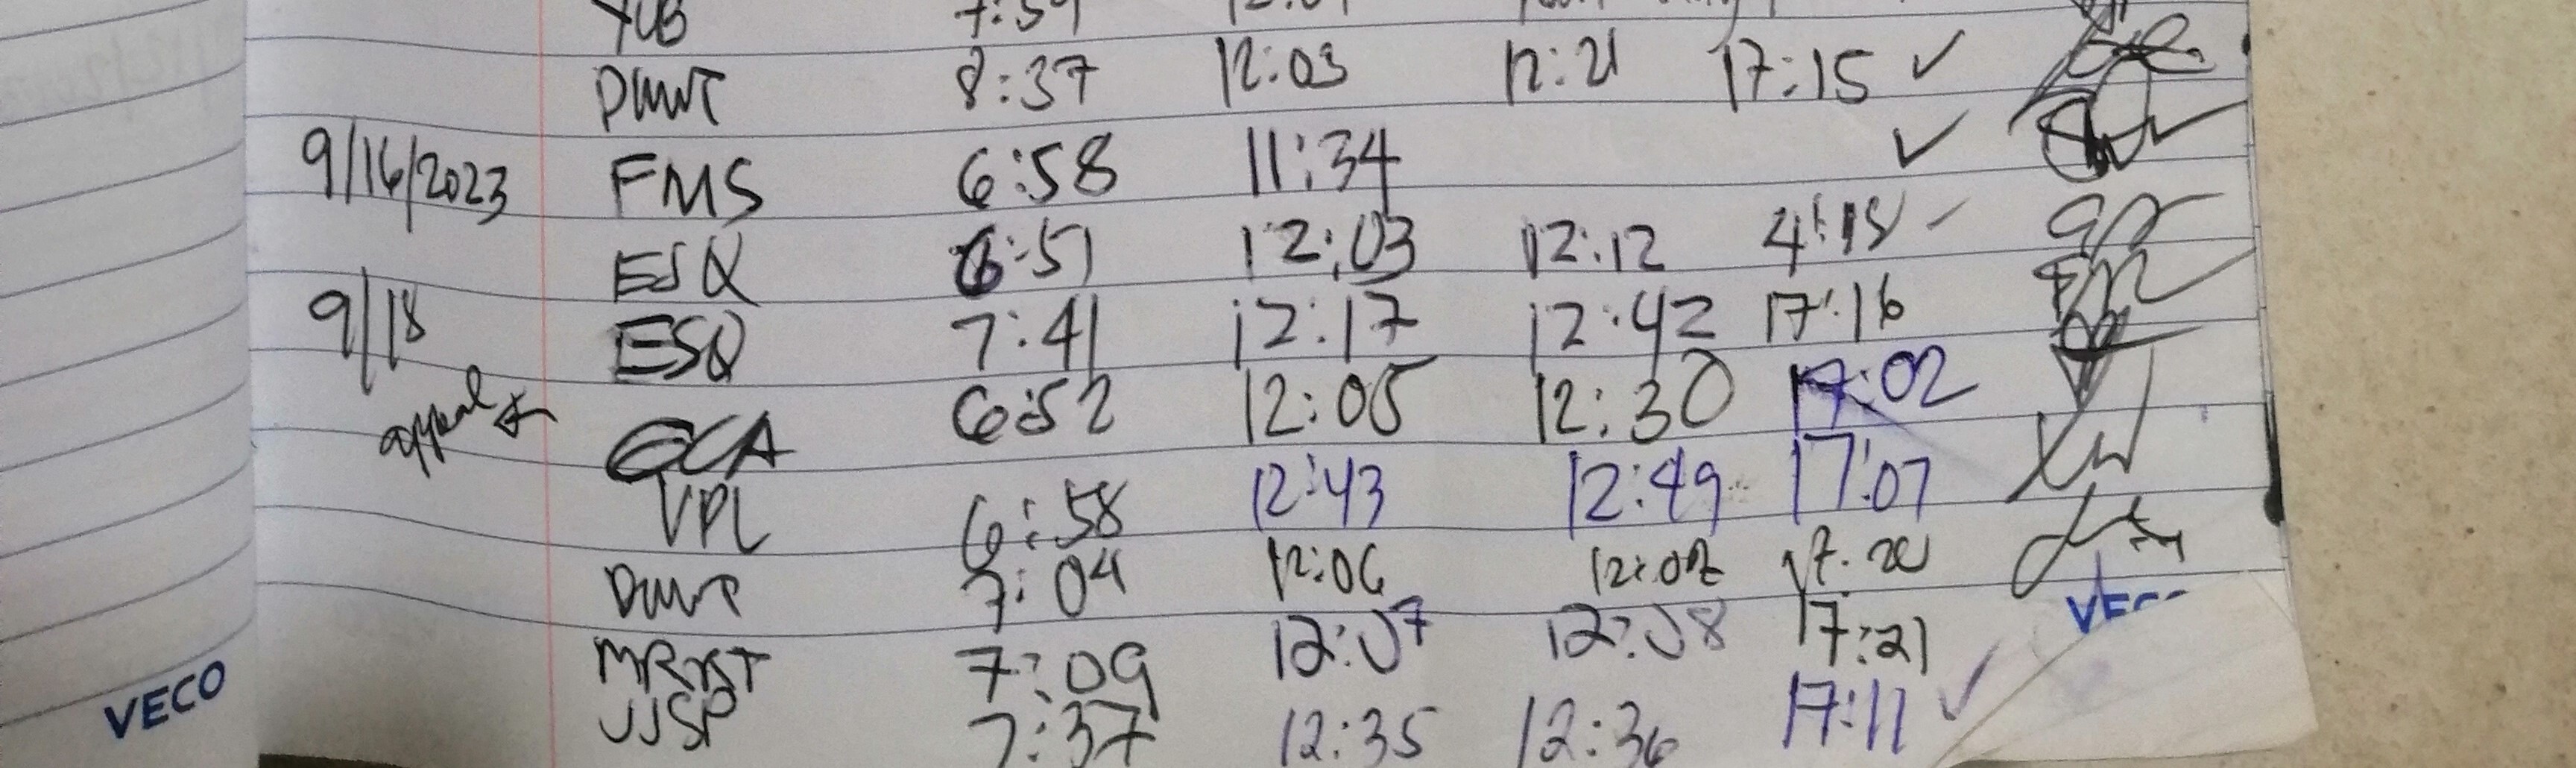 YCB 7:59
8:37 12:03 12:21 17:15 ✓
9/16/2023 FMS 6:58 11:34 ✓
ESQ 6:51 12:03 12:12 4:18
9/18 ESQ 7:41 12:17 12:42 17:16
appeal GCA 6:52 12:05 12:30 17:02
VPL 6:58 12:43 12:49 17:07
7:04 12:06 17:20
7:09 12:07 12:08 17:21
JJSP 7:37 12:35 12:36 17:11 ✓
VECO
VECO